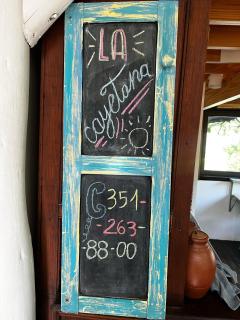 LA
cayetana
C351-
-263-
-88-00